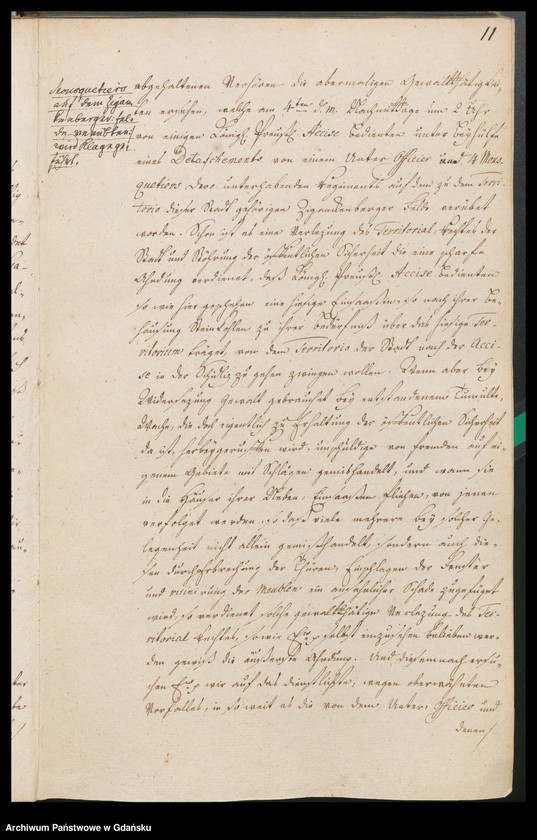 11
Mousquetiers
auf dem Zigan-
kenberger Fel-
de verübten
wird klage ge-
führt.
abgehaltenen Verhören die abermaligen Gewaltthätigkei-
ten ersehen, welche am 4ten d. m. Nachmittags um 2 Uhr
von einigen Königl. Preußl. Accise Bedienten unter Beyhülfe
eines Detaschements von einem Unter Officier und 4 Mous-
quetiers Dero unterhabenden Regiments auf dem zu dem Terri-
torio dieser Stadt gehörigen Zigankenberger Felde verübet
worden. Schon ist es eine Verletzung des Territorial Rechtes der
Stadt und Störung der öffentlichen Sicherheit die eine scharfe
Ahndung verdienet, daß Königl. Preußl. Accise Bedienten
so wie hier geschehen eine hiesige Einwohn, so nach ihrer Be-
hausung Steinkohlen zu ihrer Bedürfniß über das hiesige Ter-
ritorium träget, von dem Territorio der Stadt nach der Acci-
se in der Schidlitz zu gehen zwingen wollen. Wenn aber bey
Widersetzung Gewalt gebrauchet bey entstandenem Tumulte,
Wache, die doch eigentlich zu Erhaltung der öffentlichen Sicherheit
da ist, herbeygeruffen wird, unschuldige von fremden auf ei-
genem Gebiete mit Schlägen gemishandelt, und wenn sie
in die Häuser ihrer Neben-Einwohner fliehen, von jenen
verfolget werden, so daß viele mehrere bey solcher Ge-
legenheit nicht allein gemishandelt, sondern auch die-
sen durch Erbrechung der Thüren, Einschlagen der Fenster
und ruinirung der Meublen ein ansehnlicher Schade zugefüget
wird, so verdienet solche gewaltthätige Verletzung des Ter-
ritorial Rechtes, so wie selbst einzusehen belieben wer-
den gewiß die äußerste Ahndung. Und diesemnach ersu-
chen wir auf das dienstlichste, wegen oberwähnten
Vorfalles, in so weit es die von dem Unter-Officier und
denen
Archiwum Państwowe w Gdańsku